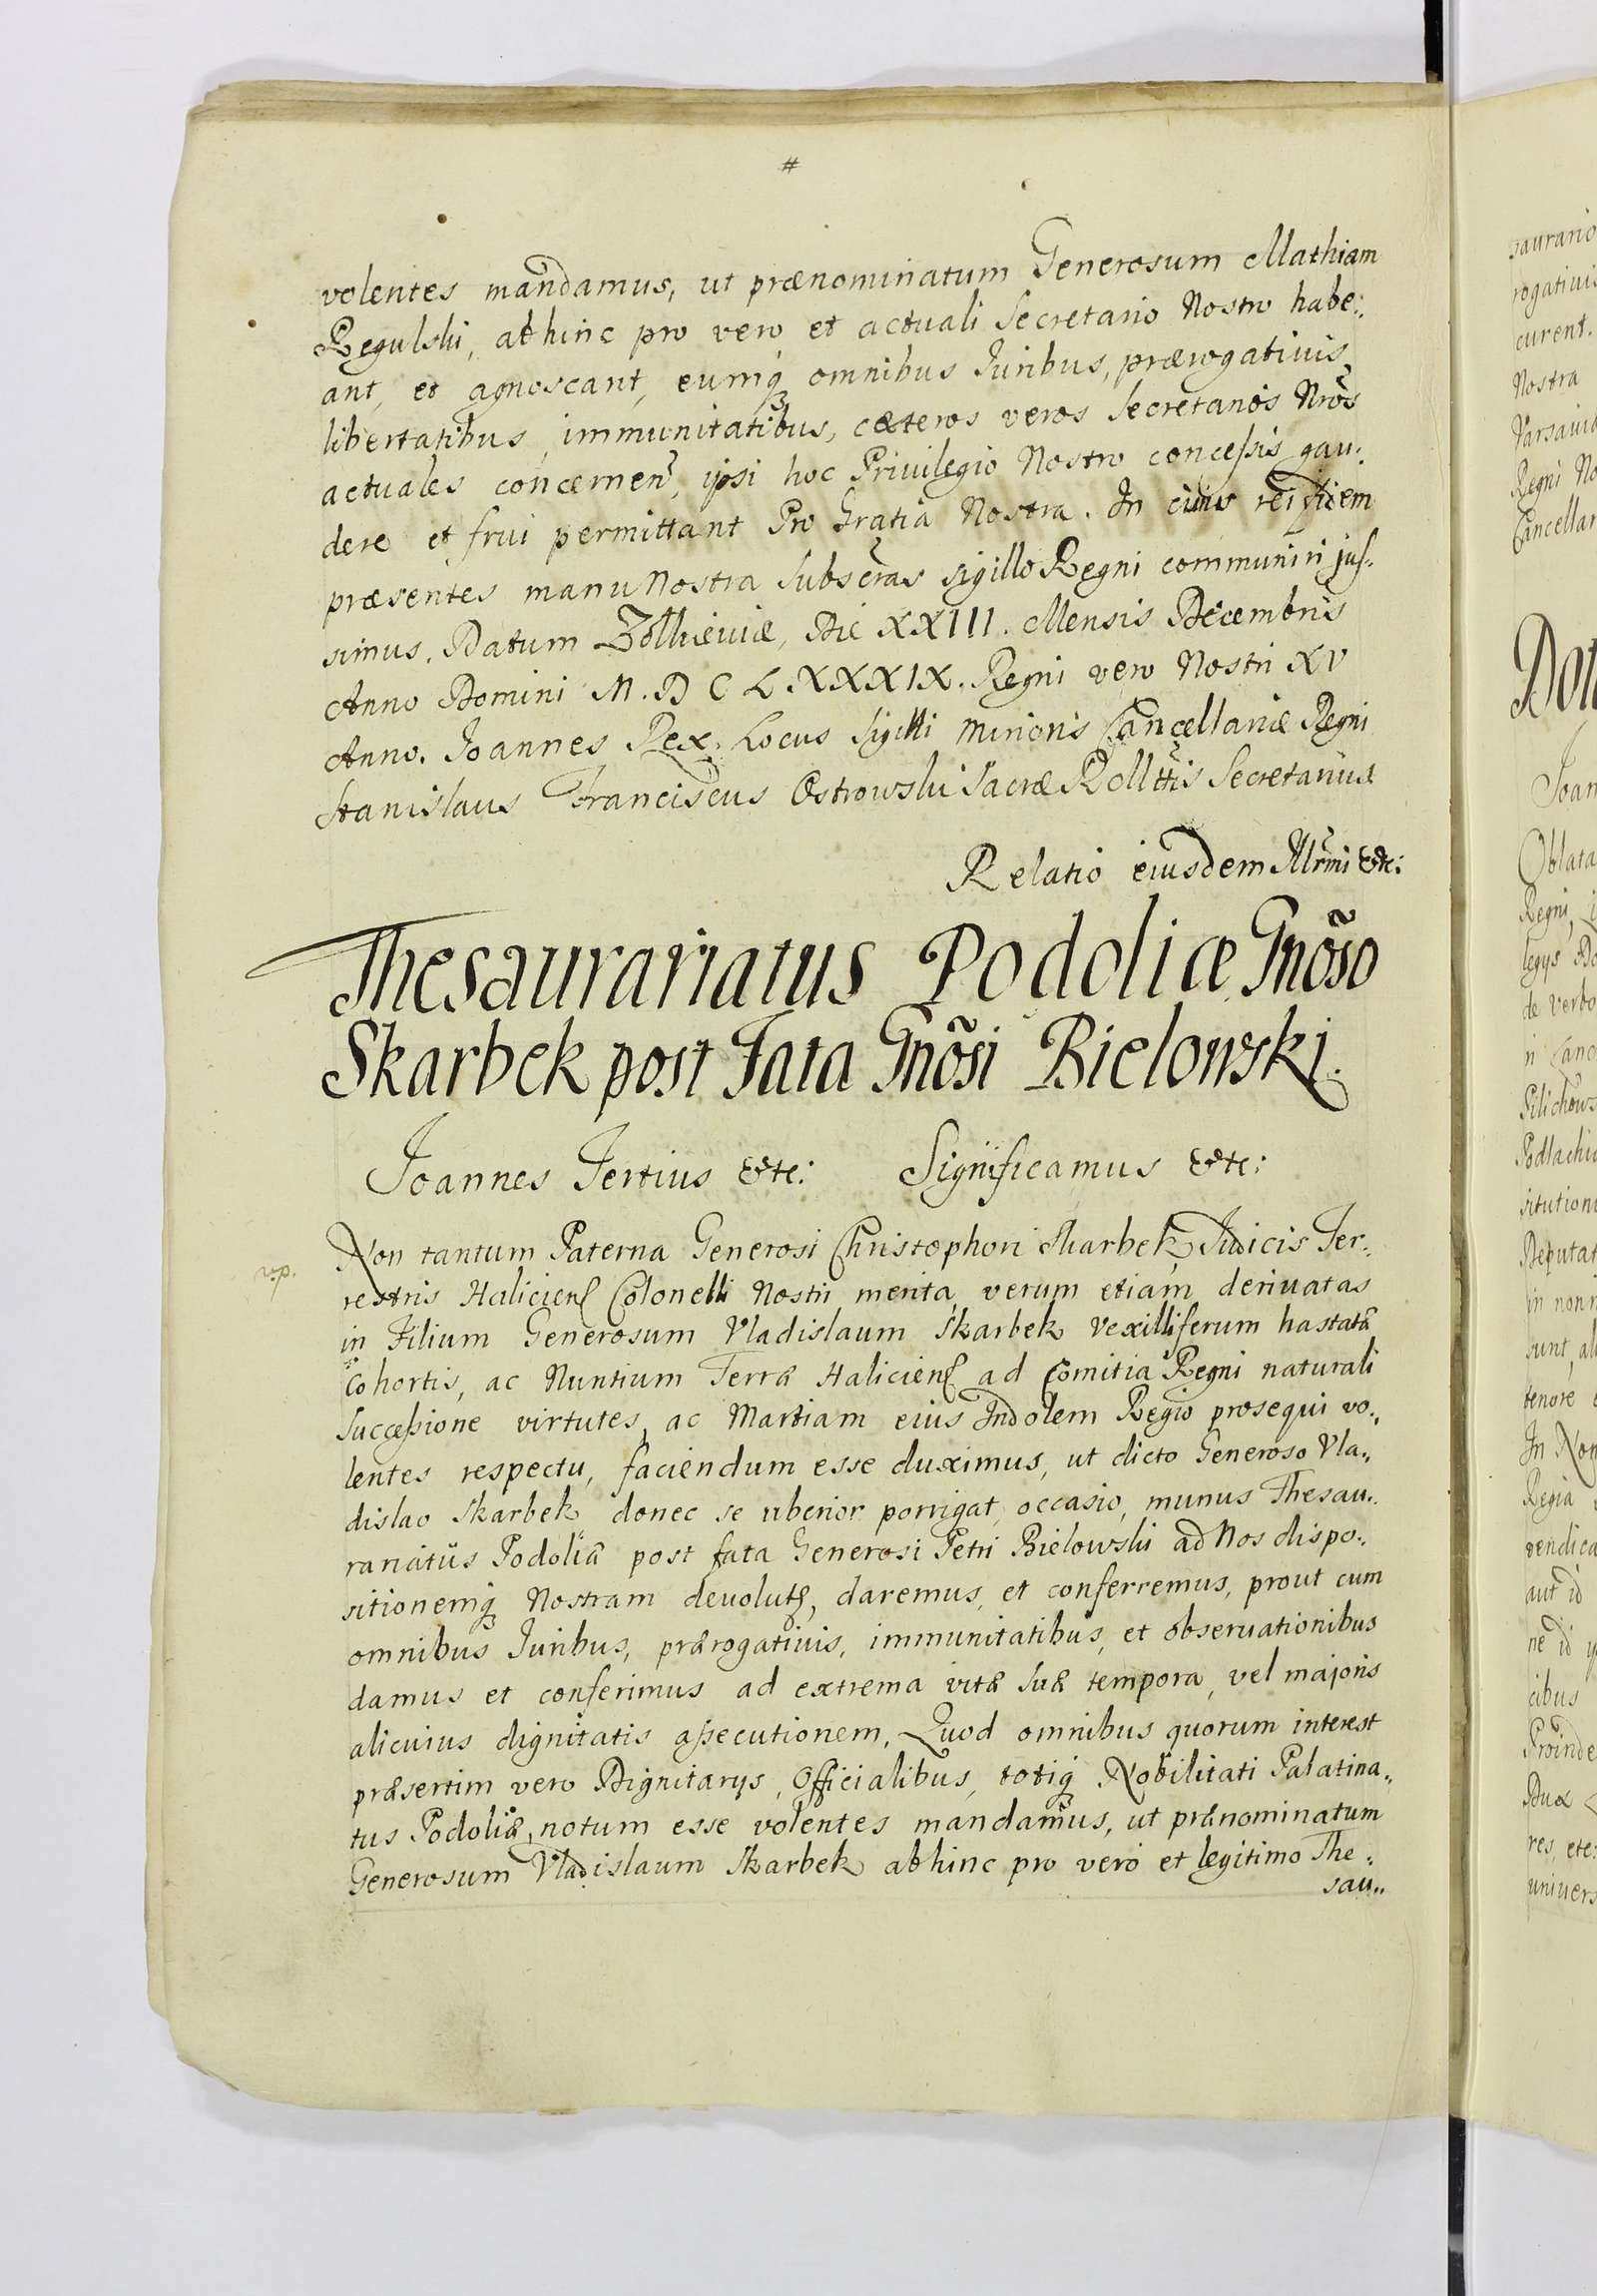 #
volentes mandamus, ut prænominatum Generosum Mathiam
Regulski, abhinc pro vero et actuali Secretario Nostro habe:
ant, et agnoscant, eumq omnibus Juribus, prærogativis,
libertatibus, immunitatibus, cæteros veros Secretarios Nrõs
actuales concernen, ipsi hoc Privilegio Nostro concessis gau:
dere et frui permittant Pro Gratia Nostra. In cuius rei fidem
præsentes manu Nostra Subscras sigillo Regni communiri jus:
simus. Datum Zolkieviæ, Die XXIII. Mensis Decembris
Anno Domini M. D C L XXXIX. Regni vero Nostri XV
Anno. Joannes Rex. Locus Sigilli Minoris Cancellariæ Regni
Stanislaus Franciscus Ostrowski Sacræ RMttis Secretarius
Relatio eiusdem Illrmi &tc:
Thesaurariatus Podoliæ Gnõso
Skarbek post Fata Gnõsi Bielowski.
Joannes Tertius &tc: Significamus &tc:
Non tantum Paterna Generosi Christophori Skarbek, Judicis Ter:
restris Halicien Colonelli Nostri merita, verum etiam derivatas
in Filium Generosum Vladislaum Skarbek Vexilliferum hastatæ
Cohortis, ac Nuntium Terræ Halicien ad Comitia Regni naturali
successione virtutes, ac Martiam eius Indolem Regio prosequi vo:
lentes respectu, faciendum esse duximus, ut dicto Generoso Vla:
dislao Skarbek donec se uberior porrigat occasio, munus Thesau:
rariatus Podoliæ post fata Generosi Petri Bielowski ad Nos dispo:
sitionemq Nostram devolut, daremus, et conferremus, prout cum
omnibus Juribus, prærogativis, immunitatibus, et observationibus
damus et conferimus ad extrema vitæ suæ tempora, vel majoris
alicuius dignitatis assecutionem. Quod omnibus quorum interest
præsertim vero Dignitarys, Officialibus, totiq Nobilitati Palatina:
tus Podoliæ, notum esse volentes mandamus, ut prænominatum
Generosum Vladislaum Skarbek abhinc pro vero et legitimo The:
sau: